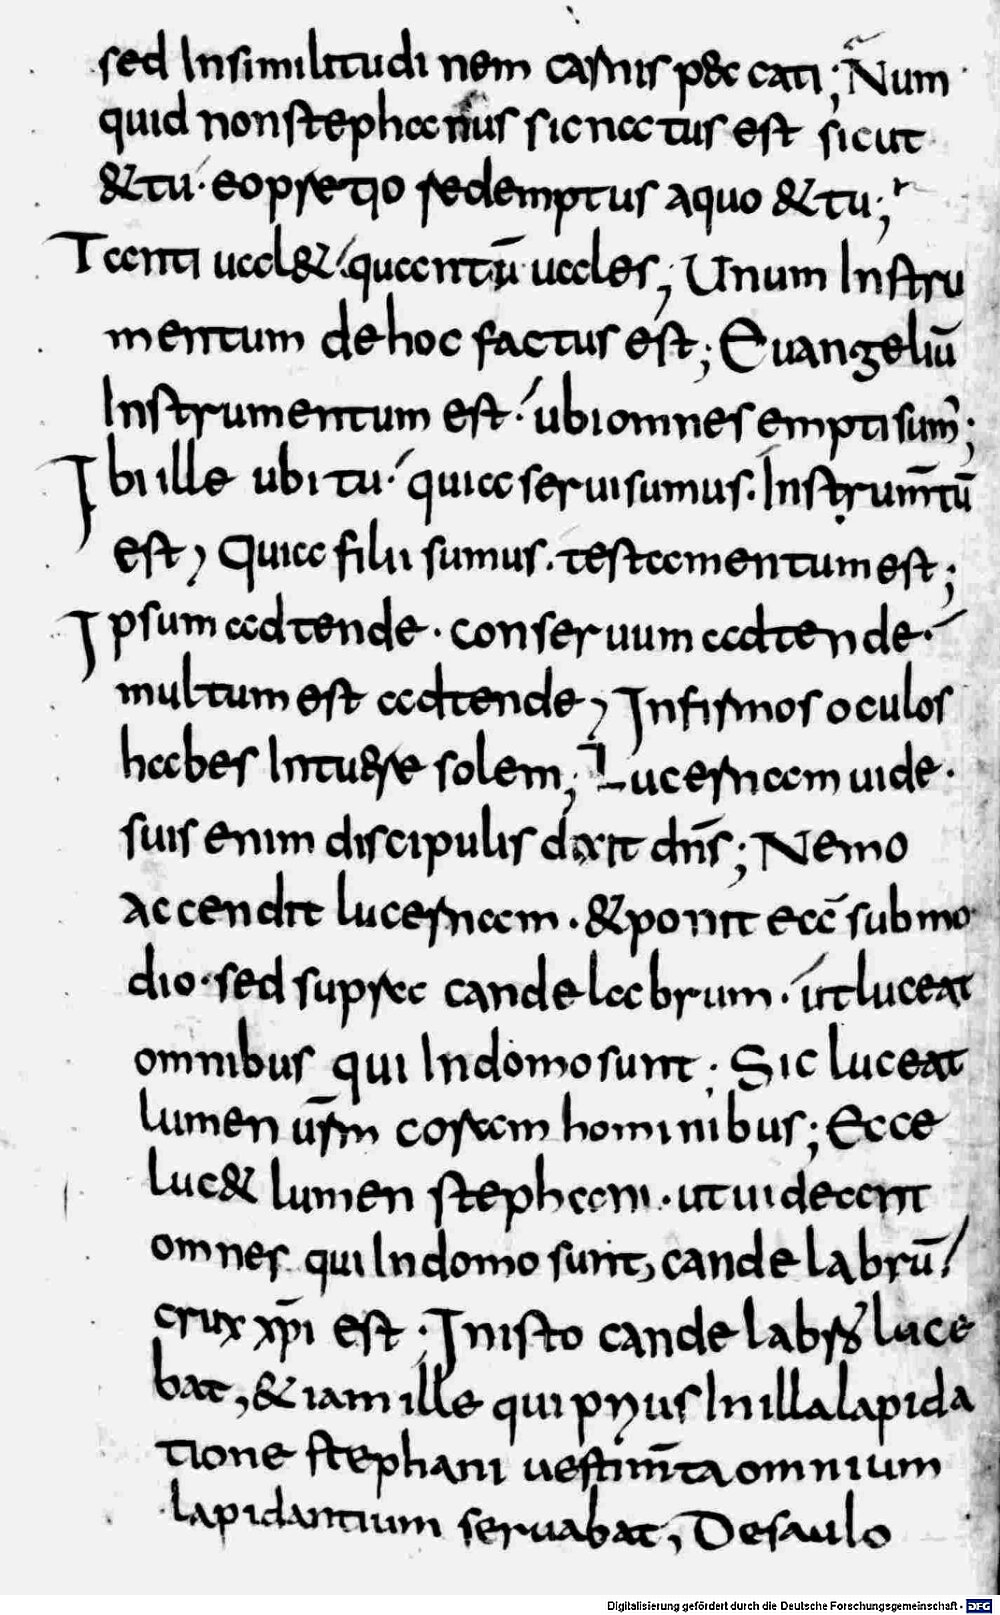 sed Insimilitudi nem carnis p&c cati; Num
quid nonstephanus sicnatus est sicut
&tu· eopretio redemptus aquo &tu;
Tanti ual&· quantū uales; Unum Instru
mentum dehoc factus est; Euangeliū
Instrumentum est· ubiomnes emptisum';
Ibi ille ubi tu· quia seruisumus. Instrum̄tū
est, Quia filii sumus. testamentum est;
Ipsum adtende· conseruum adtende·
multum est adtende, Infirmos oculos
habes Intu&re solem; Lucernam uide·
suis enim discipulis dixit dn̄s; Nemo
accendit lucernam·&ponit eā submo
dio·sed supra candelabrum· utluceat
omnibus qui Indomosunt; Sic luceat
lumen ūrm coram hominibus; Ecce
luc& lumen stephani·utuideant
omnes quiIndomo sunt, candelabrū
crux xp̄i est· Inisto candelabro luce
bat, & iam ille qui prius Inillalapida
tione stephani uestim̄taomnium
lapidantium seruabat, Desaulo
Digitalisierung gefördert durch die Deutsche Forschungsgemeinschaft - DFG